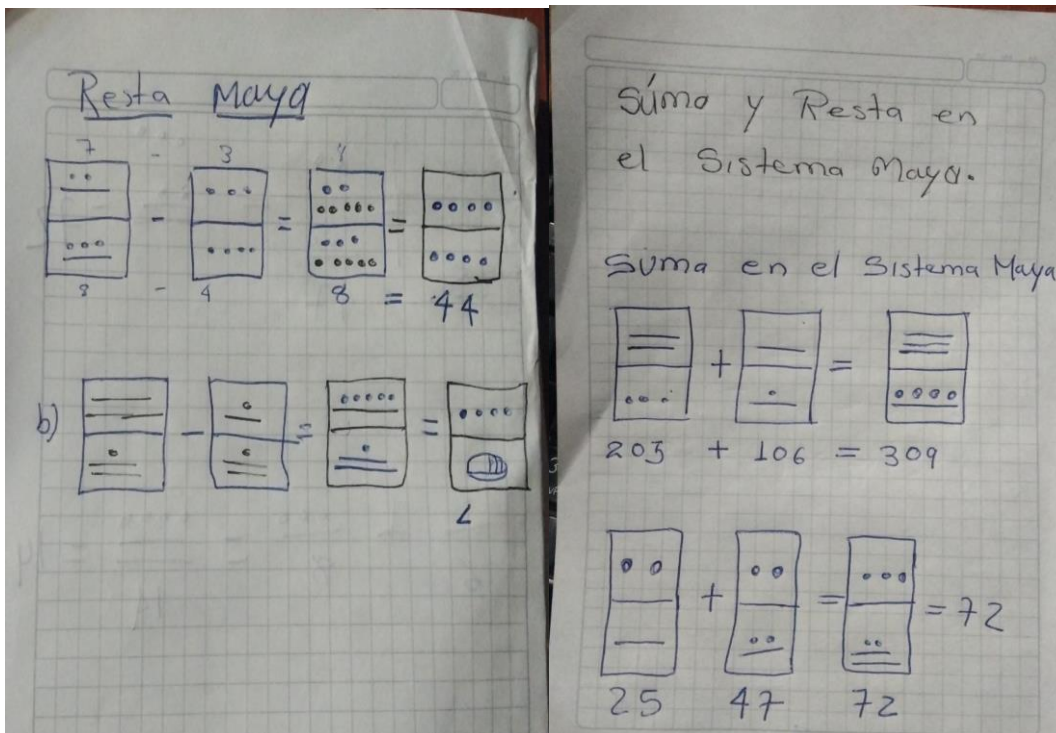 Resta Maya
7 - 3 4
- = =
8 - 4 8 = 44
b) - = =
Súma y Resta en
el Sistema Maya.
Suma en el Sistema Maya
+ =
203 + 106 = 309
+ = = 72
25 47 72